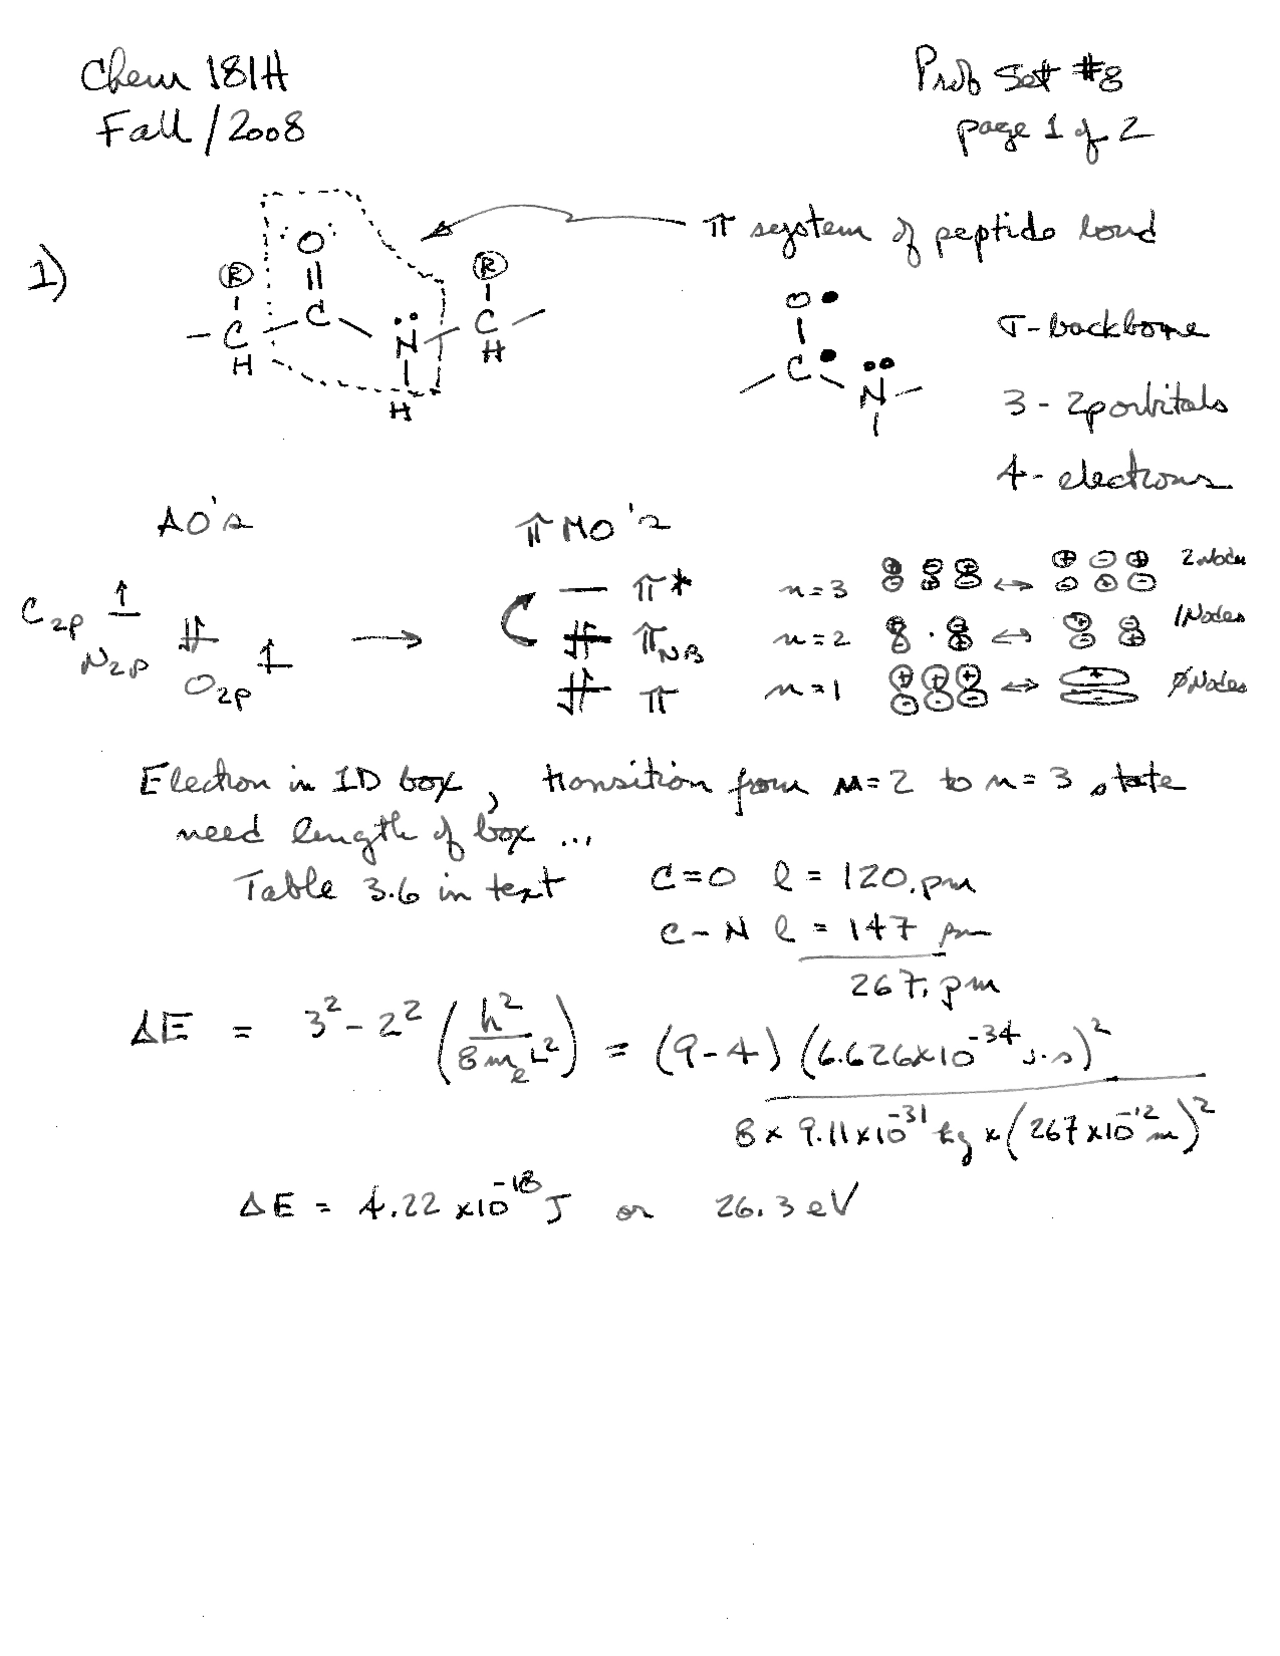 Chem 181H
Fall/2008
Prob Set #8
page 1 of 2
1)
π system of peptide bond
O
R
C
H
C
N
H
R
C
H
O
C
N
σ-backbone
3 - 2p orbitals
4 - electrons
AO's
π MO's
C2p
N2p
O2p
π*
πNB
π
n=3
2 Nodes
n=2
1 Nodes
n=1
∅ Nodes
Electron in 1D box, transition from n=2 to n=3 state
need length of box ...
Table 3.6 in text
C=O l = 120. pm
C-N l = 147 pm
267. pm
ΔE = 3² - 2² (h² / 8 mₑL²) = (9-4) (6.626x10⁻³⁴ J·s)²
8 x 9.11x10⁻³¹ kg x (267x10⁻¹² m)²
ΔE = 4.22 x10⁻¹⁸ J or 26.3 eV